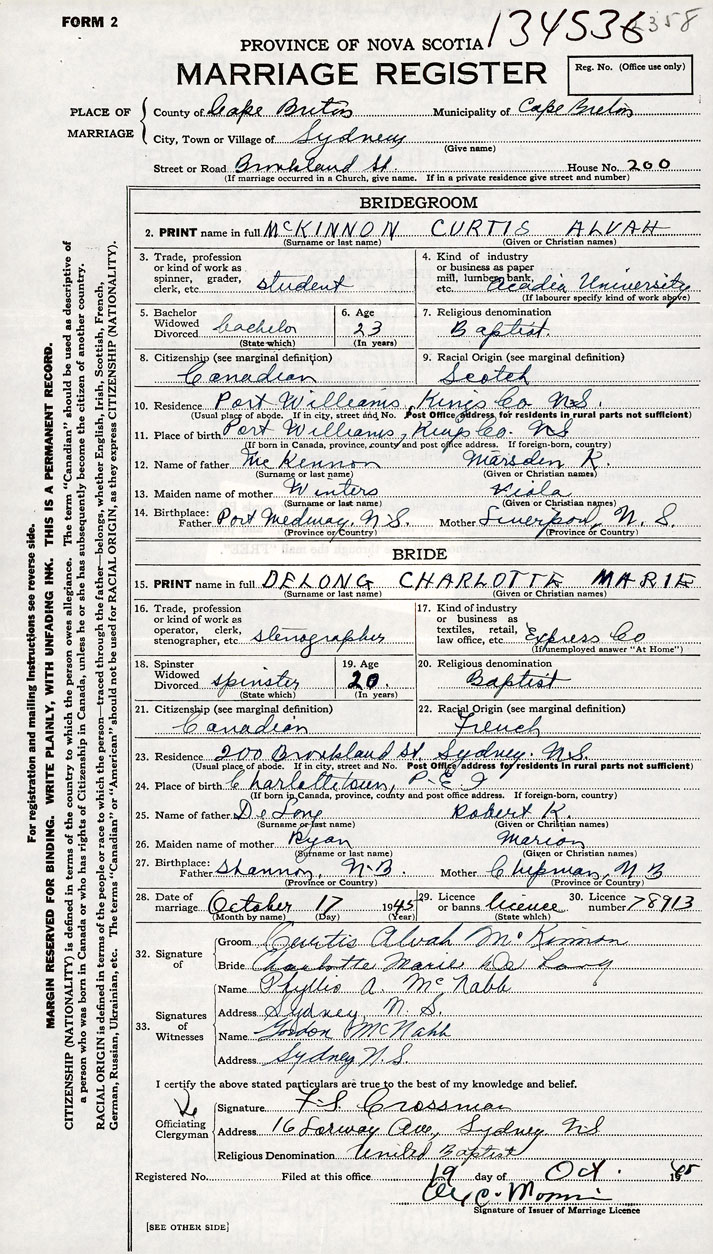 FORM 2
134536 358
PROVINCE OF NOVA SCOTIA
MARRIAGE REGISTER
Reg. No. (Office use only)
PLACE OF MARRIAGE
County of Cape Breton Municipality of Cape Breton
City, Town or Village of Sydney
(Give name)
Street or Road Brookland St. House No. 200
(If marriage occurred in a Church, give name. If in a private residence give street and number)
BRIDEGROOM
2. PRINT name in full MCKINNON CURTIS ALVAH
(Surname or last name) (Given or Christian names)
3. Trade, profession or kind of work as spinner, grader, clerk, etc. student
4. Kind of industry or business as paper mill, lumber, bank, etc. Acadia University
(If labourer specify kind of work above)
5. Bachelor Widowed Divorced bachelor
(State which)
6. Age 23
(In years)
7. Religious denomination Baptist.
8. Citizenship (see marginal definition) Canadian
9. Racial Origin (see marginal definition) Scotch
10. Residence Port Williams, Kings Co. N.S.
(Usual place of abode. If in city, street and No. Post Office address, for residents in rural parts not sufficient)
11. Place of birth Port Williams, Kings Co. N.S
(If born in Canada, province, county and post office address. If foreign-born, country)
12. Name of father Mc Kennon Marsden K.
(Surname or last name) (Given or Christian names)
13. Maiden name of mother Winters Viola
(Surname or last name) (Given or Christian names)
14. Birthplace: Father Port Medway, N.S. Mother Liverpool, N. S.
(Province or Country) (Province or Country)
BRIDE
15. PRINT name in full DELONG CHARLOTTE MARIE
(Surname or last name) (Given or Christian names)
16. Trade, profession or kind of work as operator, clerk, stenographer, etc. stenographer
17. Kind of industry or business as textiles, retail, law office, etc. Express Co
(If unemployed answer "At Home")
18. Spinster Widowed Divorced spinster
(State which)
19. Age 20.
(In years)
20. Religious denomination Baptist
21. Citizenship (see marginal definition) Canadian
22. Racial Origin (see marginal definition) French
23. Residence 200 Brookland St. Sydney. N.S.
(Usual place of abode. If in city, street and No. Post Office address for residents in rural parts not sufficient)
24. Place of birth Charlottetown, P-E I
(If born in Canada, province, county and post office address. If foreign-born, country)
25. Name of father De Long Robert K.
(Surname or last name) (Given or Christian names)
26. Maiden name of mother Ryan Marion
(Surname or last name) (Given or Christian names)
27. Birthplace: Father Shannon, N-B. Mother Chipman, N B
(Province or Country) (Province or Country)
28. Date of marriage October 17 1945
(Month by name) (Day) (Year)
29. Licence or banns licence
(State which)
30. Licence number 78913
32. Signature of
Groom Curtis Alvah McKinnon
Bride Charlotte Marie De Long
33. Signatures of Witnesses
Name Phyllis A. McNabb
Address Sydney, N. S.
Name Gordon McNabb
Address Sydney N.S.
I certify the above stated particulars are true to the best of my knowledge and belief.
Officiating Clergyman
Signature F.S. Crossman
Address 16 Lorway Ave, Sydney NS
Religious Denomination United Baptist
Registered No. Filed at this office 19 day of Oct. 1945
Signature of Issuer of Marriage Licence
[SEE OTHER SIDE]
For registration and mailing instructions see reverse side.
MARGIN RESERVED FOR BINDING. WRITE PLAINLY, WITH UNFADING INK. THIS IS A PERMANENT RECORD.
CITIZENSHIP (NATIONALITY) is defined in terms of the country to which the person owes allegiance. The term "Canadian" should be used as descriptive of
a person who was born in Canada or who has rights of Citizenship in Canada, unless he or she has subsequently become the citizen of another country.
RACIAL ORIGIN is defined in terms of the people or race to which the person—traced through the father—belongs, whether English, Irish, Scottish, French,
German, Russian, Ukrainian, etc. The terms "Canadian" or "American" should not be used for RACIAL ORIGIN, as they express CITIZENSHIP (NATIONALITY).